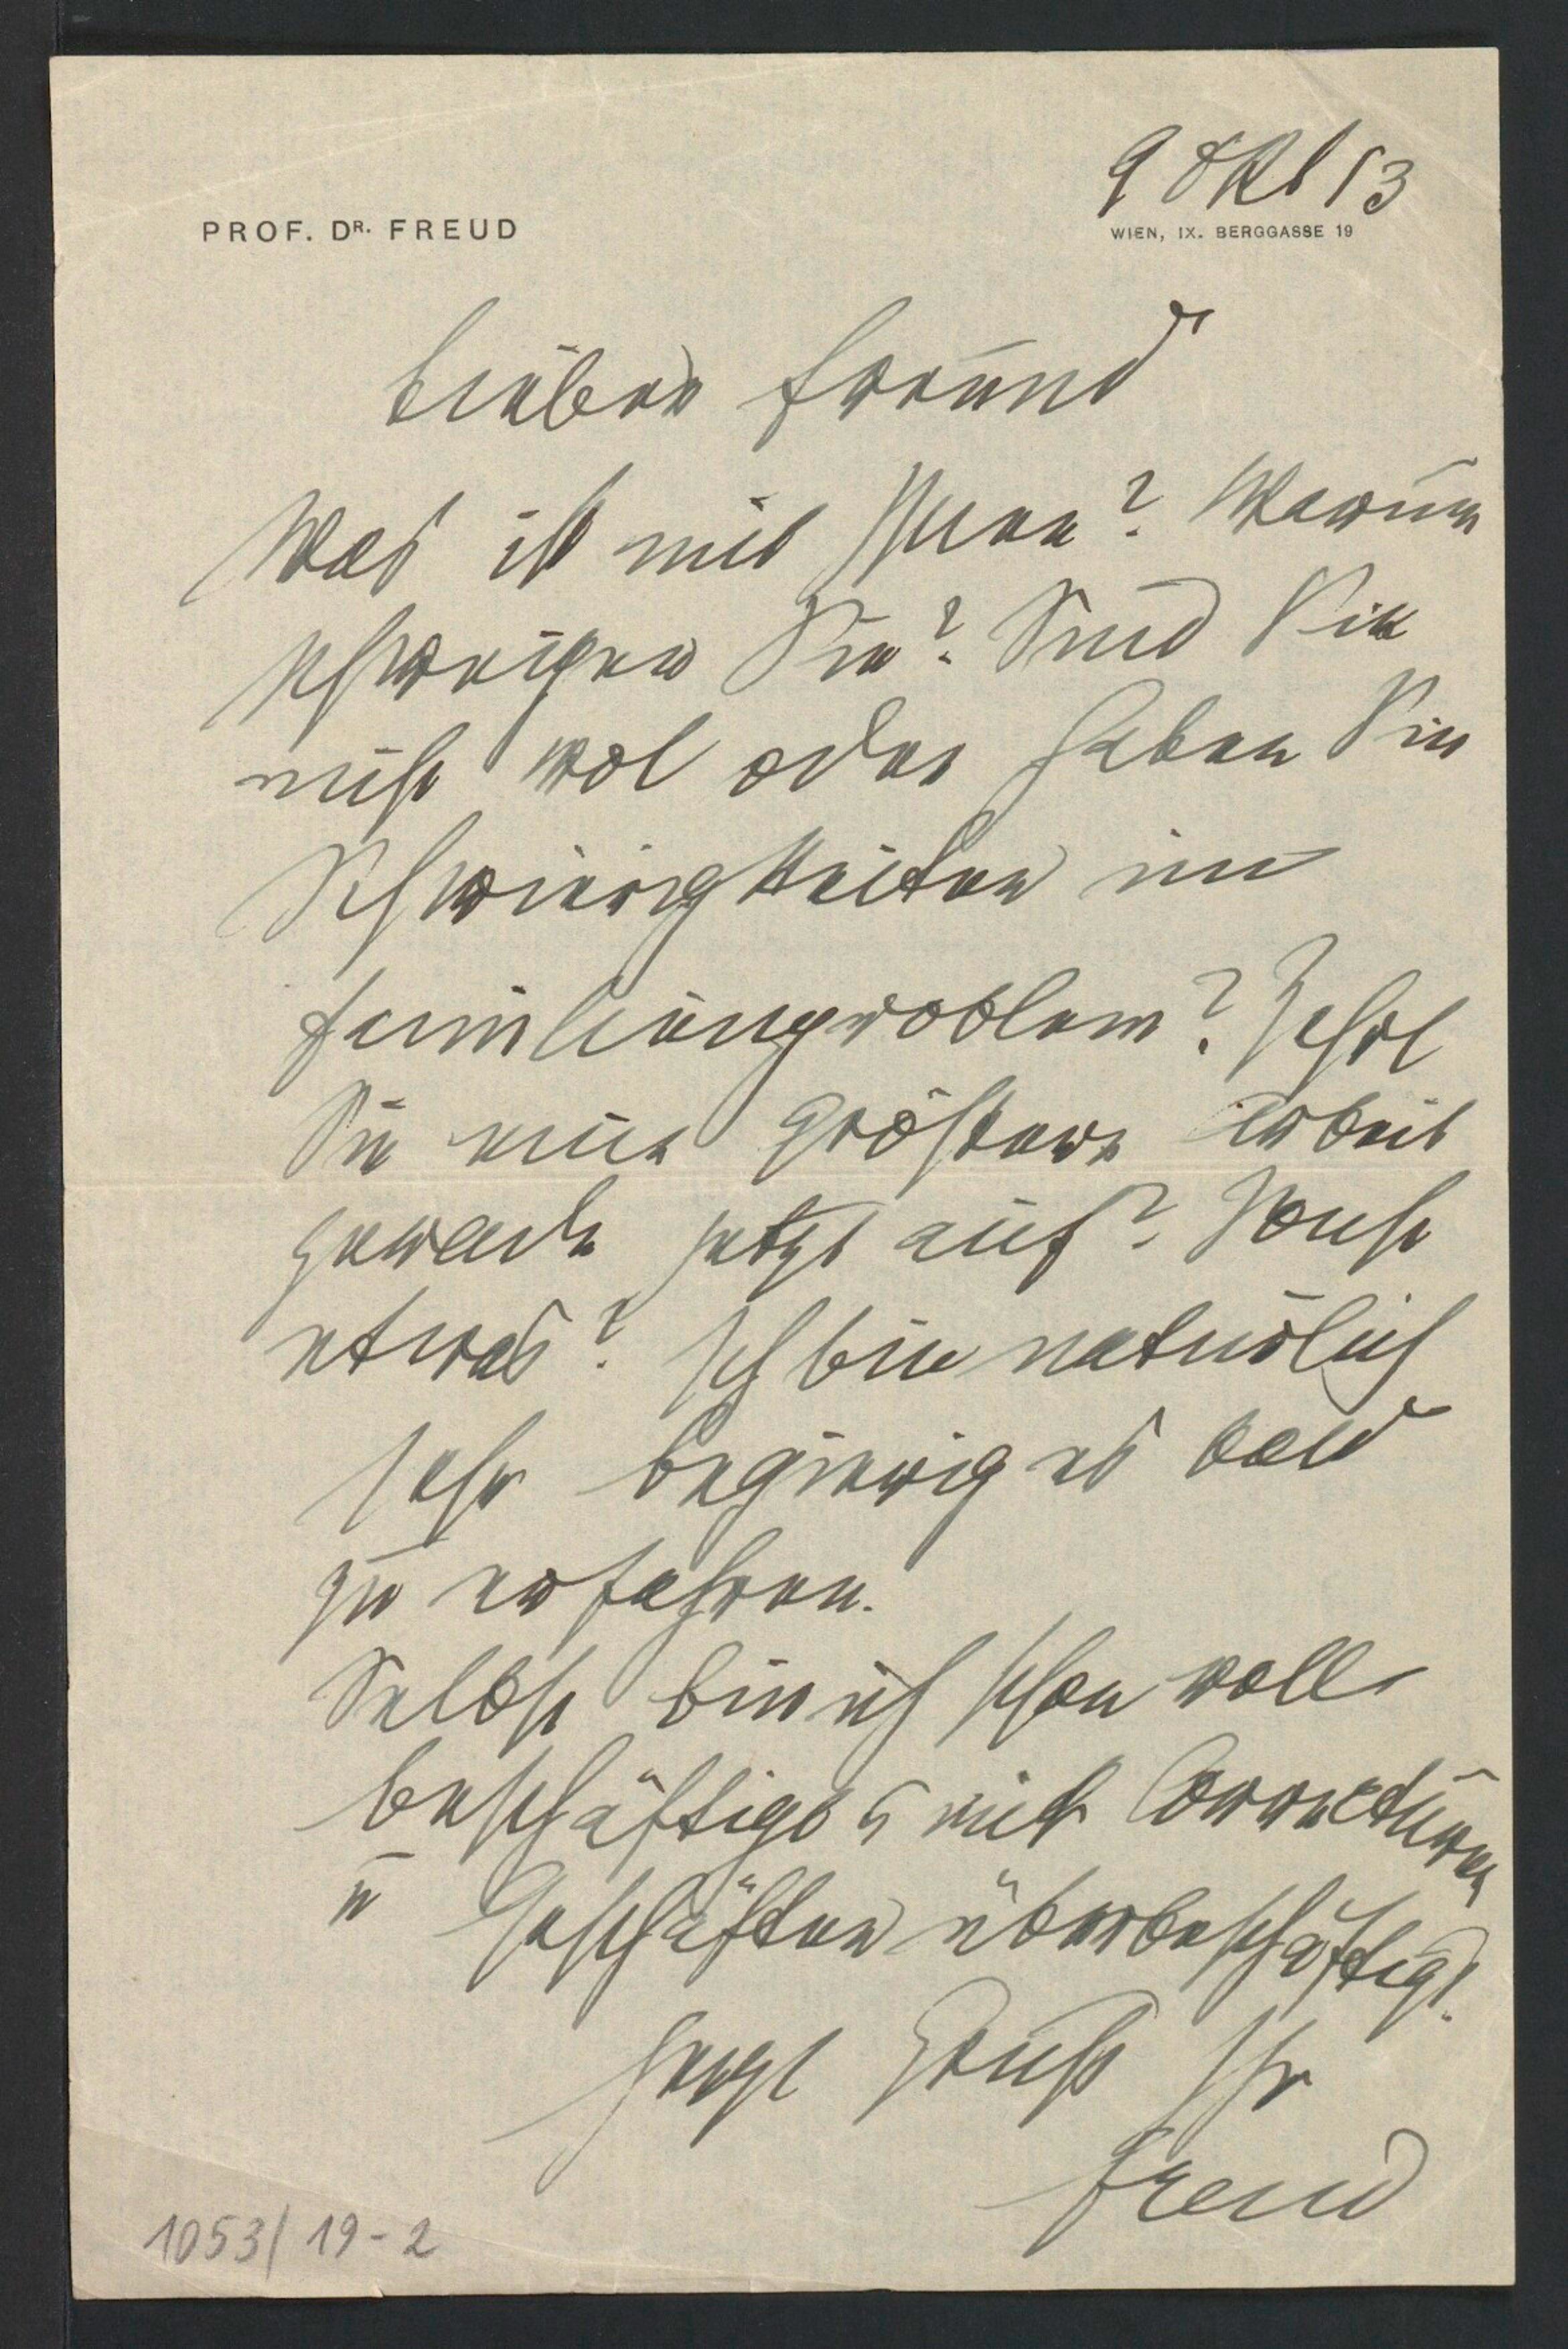 9 Okt 13
PROF. DR. FREUD
WIEN, IX. BERGGASSE 19
Lieber Freund
Was ist mit Ihnen? Warum
schweigen Sie? Sind Sie
nicht wol oder haben Sie
Schwierigkeiten im
Familienproblem?
Sie eine größere Arbeit
gerade jetzt auf? Sonst
etwas? Ich bin natürlich
sehr begierig es bald
zu erfahren.
Selbst bin ich schon voll
beschäftigt, mit Correcturen
u Geschäften überbeschäftigt.
Herzl Gruß Ihr
Freud
1053/19-2